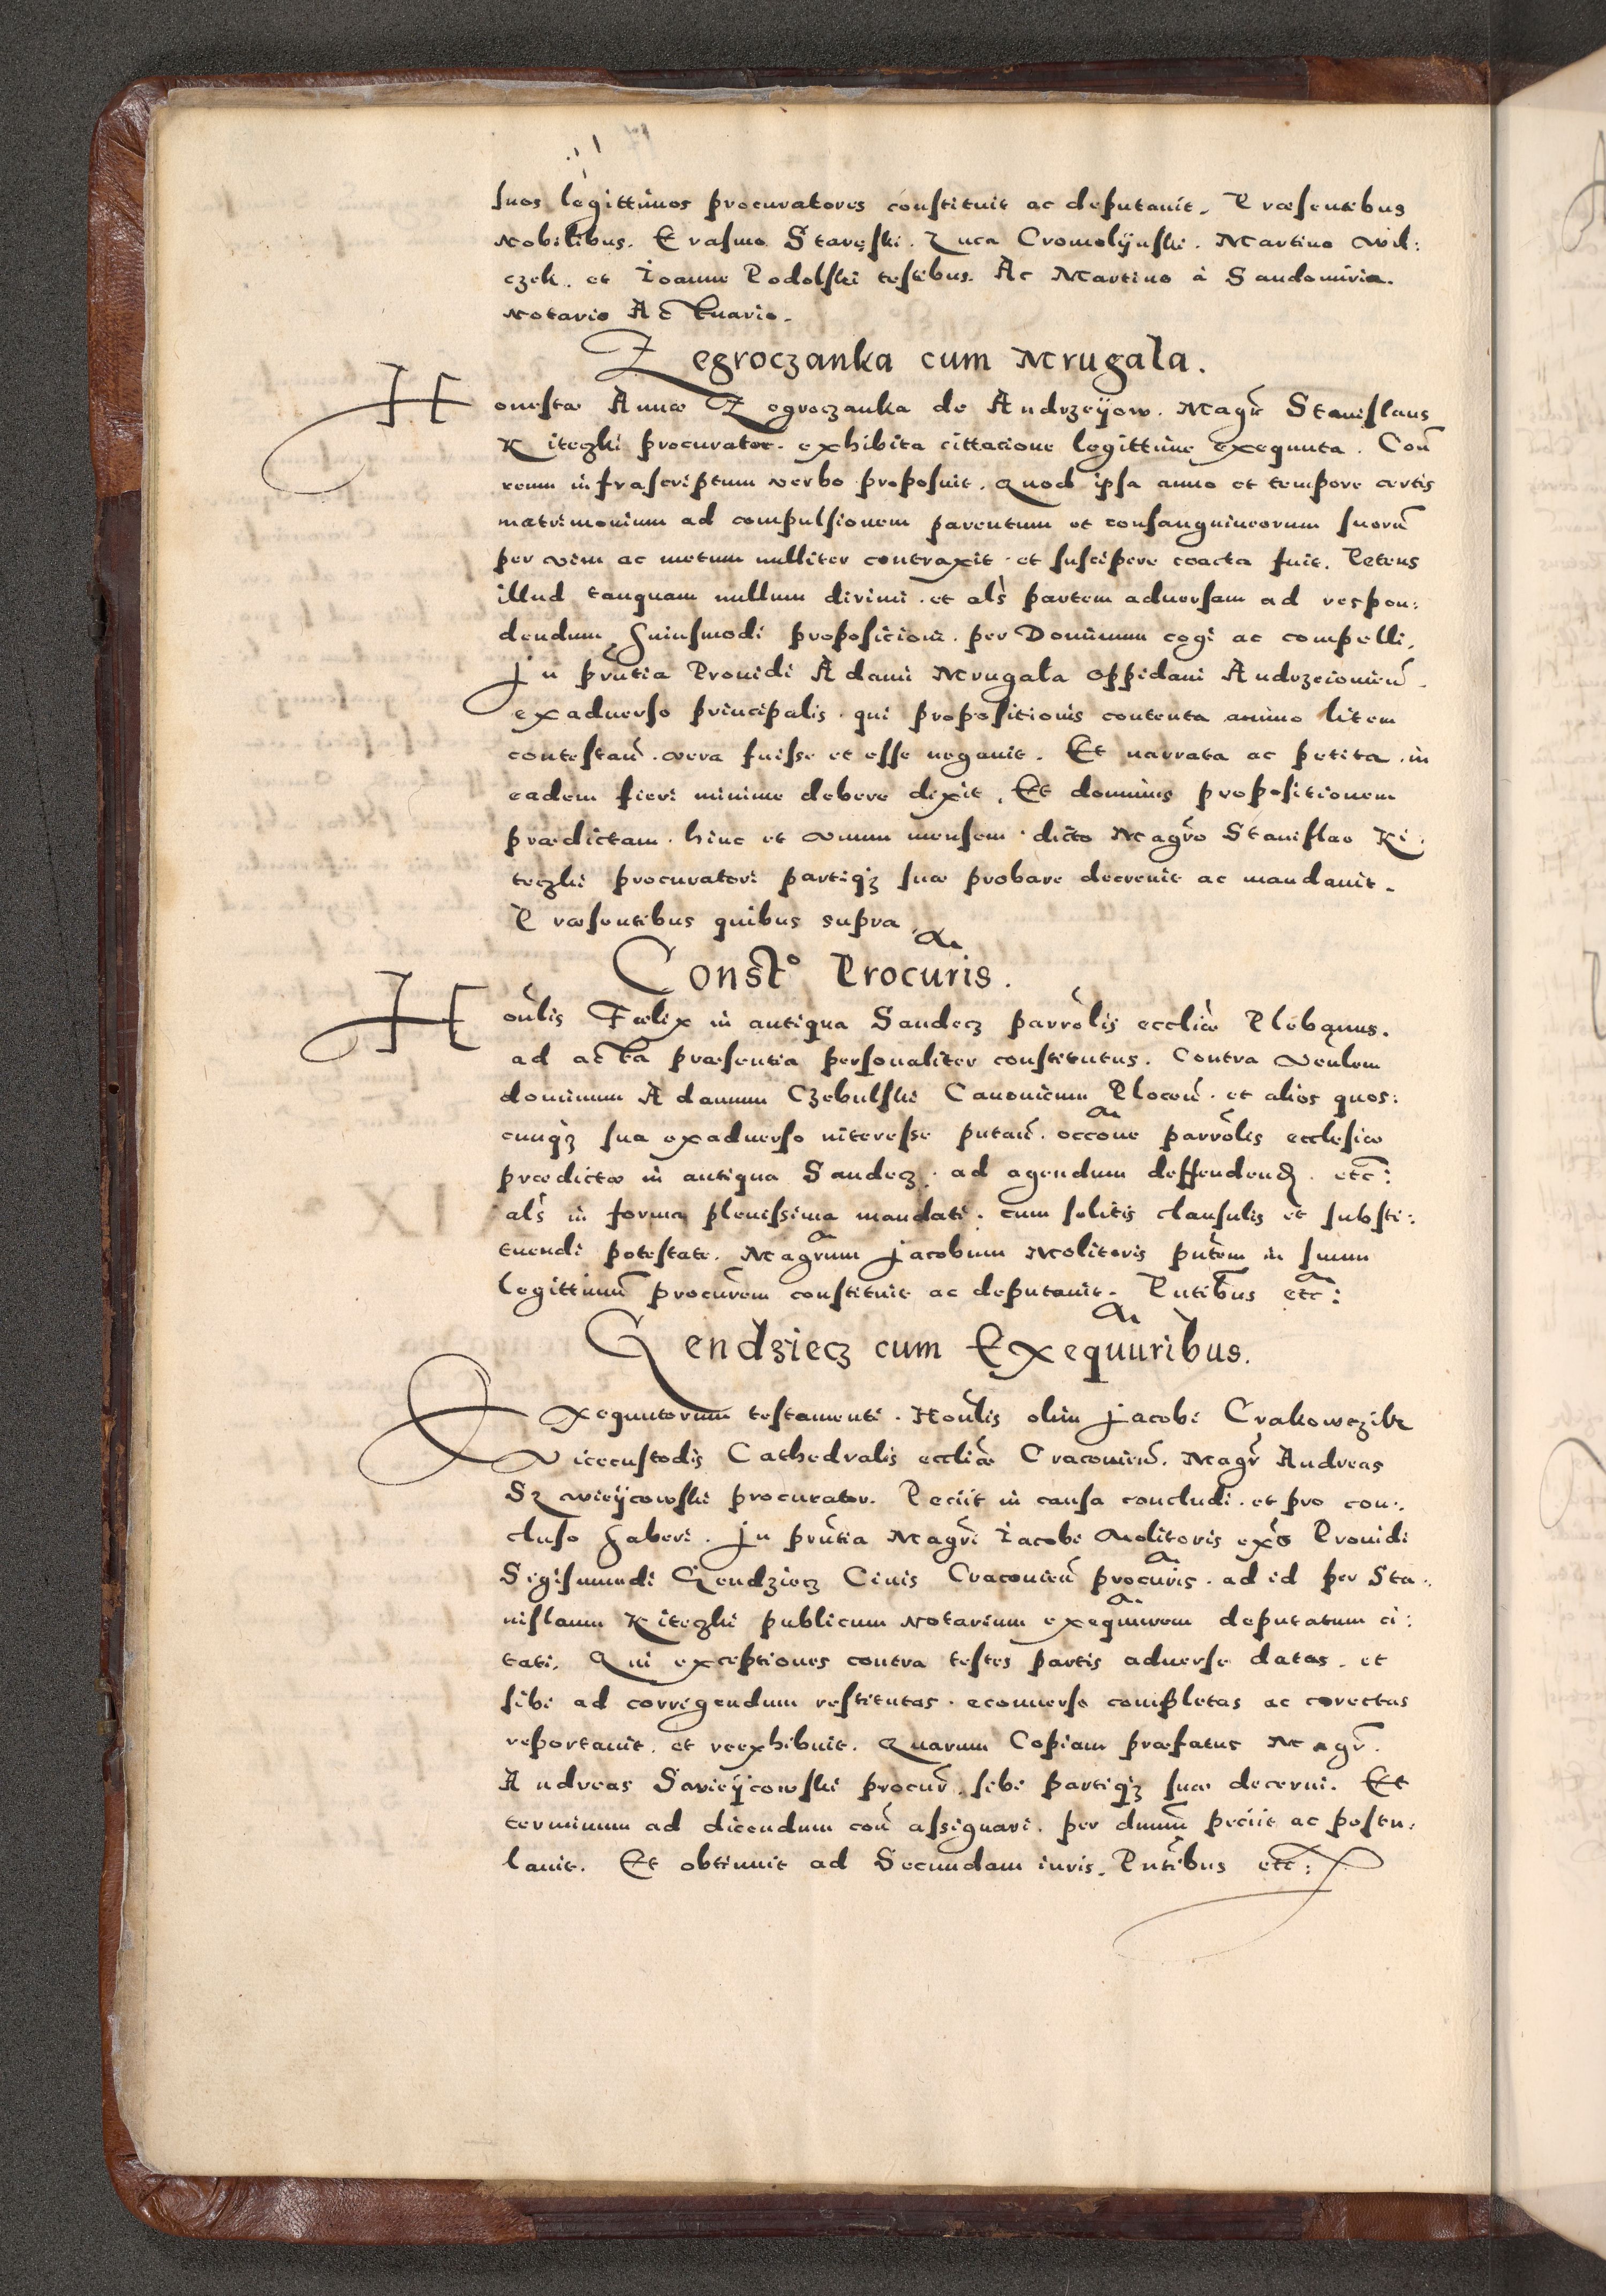 suos legittimos procuratores constituit ac deputauit. Præsentibus
Nobilibus. Erasmo Staręski. Luca Cromolÿnski. Martino Wil:
czek. et Ioanne Podolski testibus. Ac Martino à Sandomiria.
Notario Actuario.
Zegroczanka cum Mrugala.
Honestæ Annæ Zegroczanka de Andrzeÿow. Magr̃ Stanislaus
Kiteczki procurator. exhibita cittatione legittime exequuta. Con̄
reum infrascriptum verbo proposuit. Quod ipsa anno et tempore certis
matrimonium ad compulsionem parentum et consanguineorum suorũ
per vim ac metum nulliter contraxit. et suscipere coacta fuit. Petens
illud tanquam nullum dirimi. et als̀ partem aduersam ad respon:
dendum huiusmodi propositioni. per Dominum cogi ac compelli.
In prñtia Prouidi Adami Mrugala Oppidani Andrzeiouien̄.
exaduerso principalis. qui propositionis contenta animo litem
contestan̄. vera fuisse et esse negauit. Et narrata ac petita. in
eadem fieri minime debere dixit. Et dominus propositionem
prædictam. hinc et vnum mensem. dicto Magr̃o Stanislao Ki:
teczki procuratori partiq̃ʒ suæ probare decreuit ac mandauit.
Præsentibus quibus supra.
Const.º Procuris.
Hoñlis Fælix in antiqua Sandecz parrõlis eccliæ̃ Plebanus.
ad acta præsentia personaliter constitutus. Contra Venlem
dominum Adamum Czebulski Canonicum Plocen̄. et alios quos:
cunq̃ʒ sua exaduerso interesse putan̄. occõne parrõlis ecclesiæ
prædictæ in antiqua Sandecz. ad agendum deffendend. etc̃:
als̀ in forma plenissima mandati. cum solitis clausulis et substi:
tuendi potestate. Magrum Jacobum Molitoris pñtem in suum
legittimũ procũrem constituit ac deputauit. Pñtibus etc̃:
Gendziecz cum Exequuribus.
Exequutorum testamenti. Hoñlis olim Jacobi Crakowczik
Vicecustodis Cathedralis eccliæ̃ Cracouien̄. Magr̃ Andreas
Szwieÿcowski procurator. Peciit in causa concludi. et pro con:
cluso haberi. In prñtia Magr̃i Iacobi Molitoris ex̃o Prouidi
Sigismundi Gendziecz Ciuis Cracouien̄ procuris. ad id per Sta:
nislaum Kiteczki publicum Notarium exequurem deputatum ci:
tati. Qui exceptiones contra testes partis aduerse datas. et
sibi ad corrigendum restitutas. econuerso completas ac corectas
reportauit. et reexhibuit. Quarum Copiam præfatus Magr̃.
Andreas Savieÿcowski procur̃. sibi partiq̃ʒ suæ decerni. Et
terminum ad dicendum con̄ assignari. per dnũm peciit ac postu:
lauit. Et obtinuit ad Secundam iuris. Pñtibus etc̃: